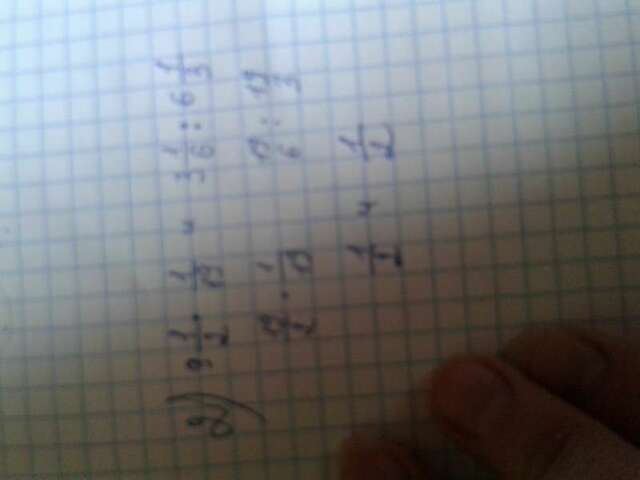 2) 9 1/2 · 1/19 = 3 1/6 : 6 1/3
19/2 · 1/19 19/6 : 19/3
1/2 = 1/2